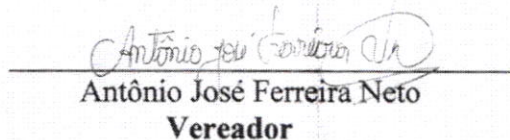 Antônio José Ferreira Nt
Antônio José Ferreira Neto
Vereador